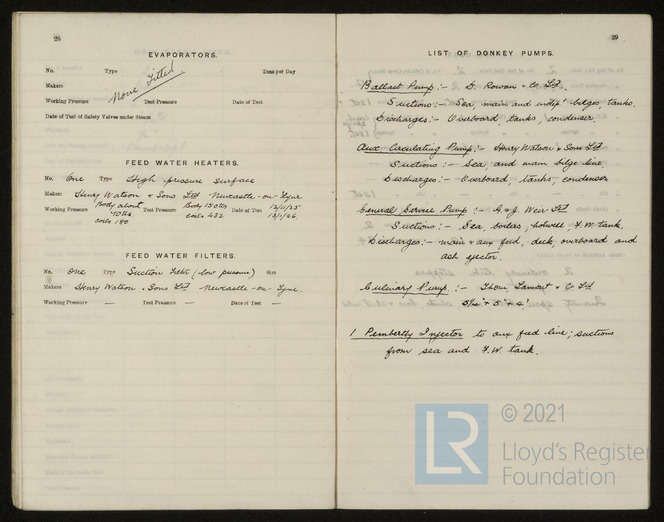 28
EVAPORATORS.
No. Type Tons per Day
None Fitted
Makers
Working Pressure Test Pressure Date of Test
Date of Test of Safety Valves under Steam
FEED WATER HEATERS.
No. One Type High pressure surface
Makers Henry Watson & Sons Ltd Newcastle-on-Tyne
Working Pressure Body about 40 lbs coils 180 Test Pressure Body 130 lbs coils 432 Date of Test 12/11/25 13/1/26
FEED WATER FILTERS.
No. One Type Suction Filt (low pressure) Size
Makers Henry Watson & Sons Ltd Newcastle-on-Tyne.
Working Pressure — Test Pressure — Date of Test —
29
LIST OF DONKEY PUMPS.
Ballast Pump:- D. Rowan & Co Ltd.
Suctions:- Sea, main and indept bilges tanks.
Discharges:- Overboard tanks, condenser.
Aux Circulating Pump:- Henry Watson & Sons Ltd
Suctions:- Sea, and main bilge line
Discharges:- Overboard, tanks, condenser
General Service Pump:- A & J. Weir Ltd
Suctions:- Sea, boilers, hotwell F.W. tank.
Discharges:- main & aux feed, deck, overboard and
ash ejector.
Culinary Pump:- Thom Lamont & Co Ltd
5" & 4"
1 Pemberthy Injector to aux feed line; suctions
from sea and F.W. tank.
LR
© 2021
Lloyd's Register
Foundation